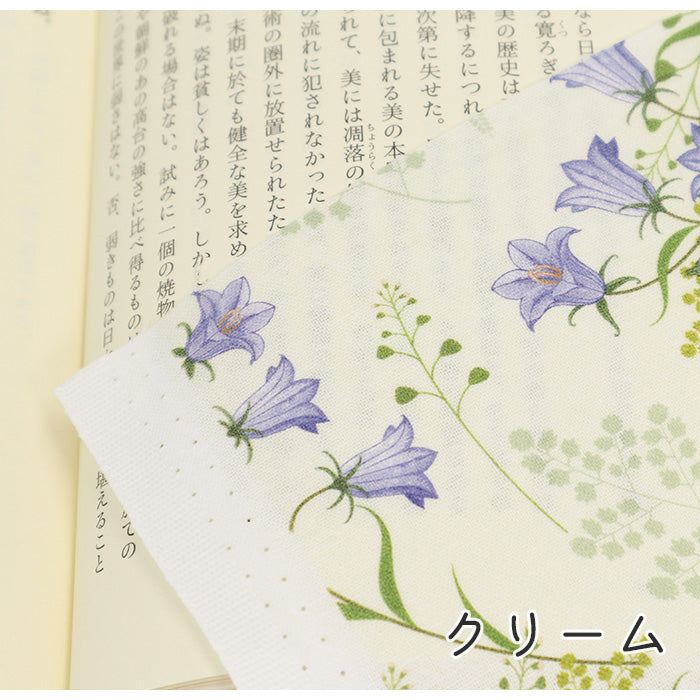 なら日
る寛ろぎ
くつ
美の歴史は
降するにつれ
次第に失せた。
に包まれる美の本
られて、美には凋落の
ちょうらく
の流れに犯されなかった
術の圏外に放置せられたた
末期に於ても健全な美を求め
ぬ。姿は貧しくはあろう。しか
破れる場合はない。試みに一個の焼物
や朝鮮のあの高台の強さに比べ得るもの
この世界に弱さはない。否、弱きものは日
ての
堪えること
クリーム